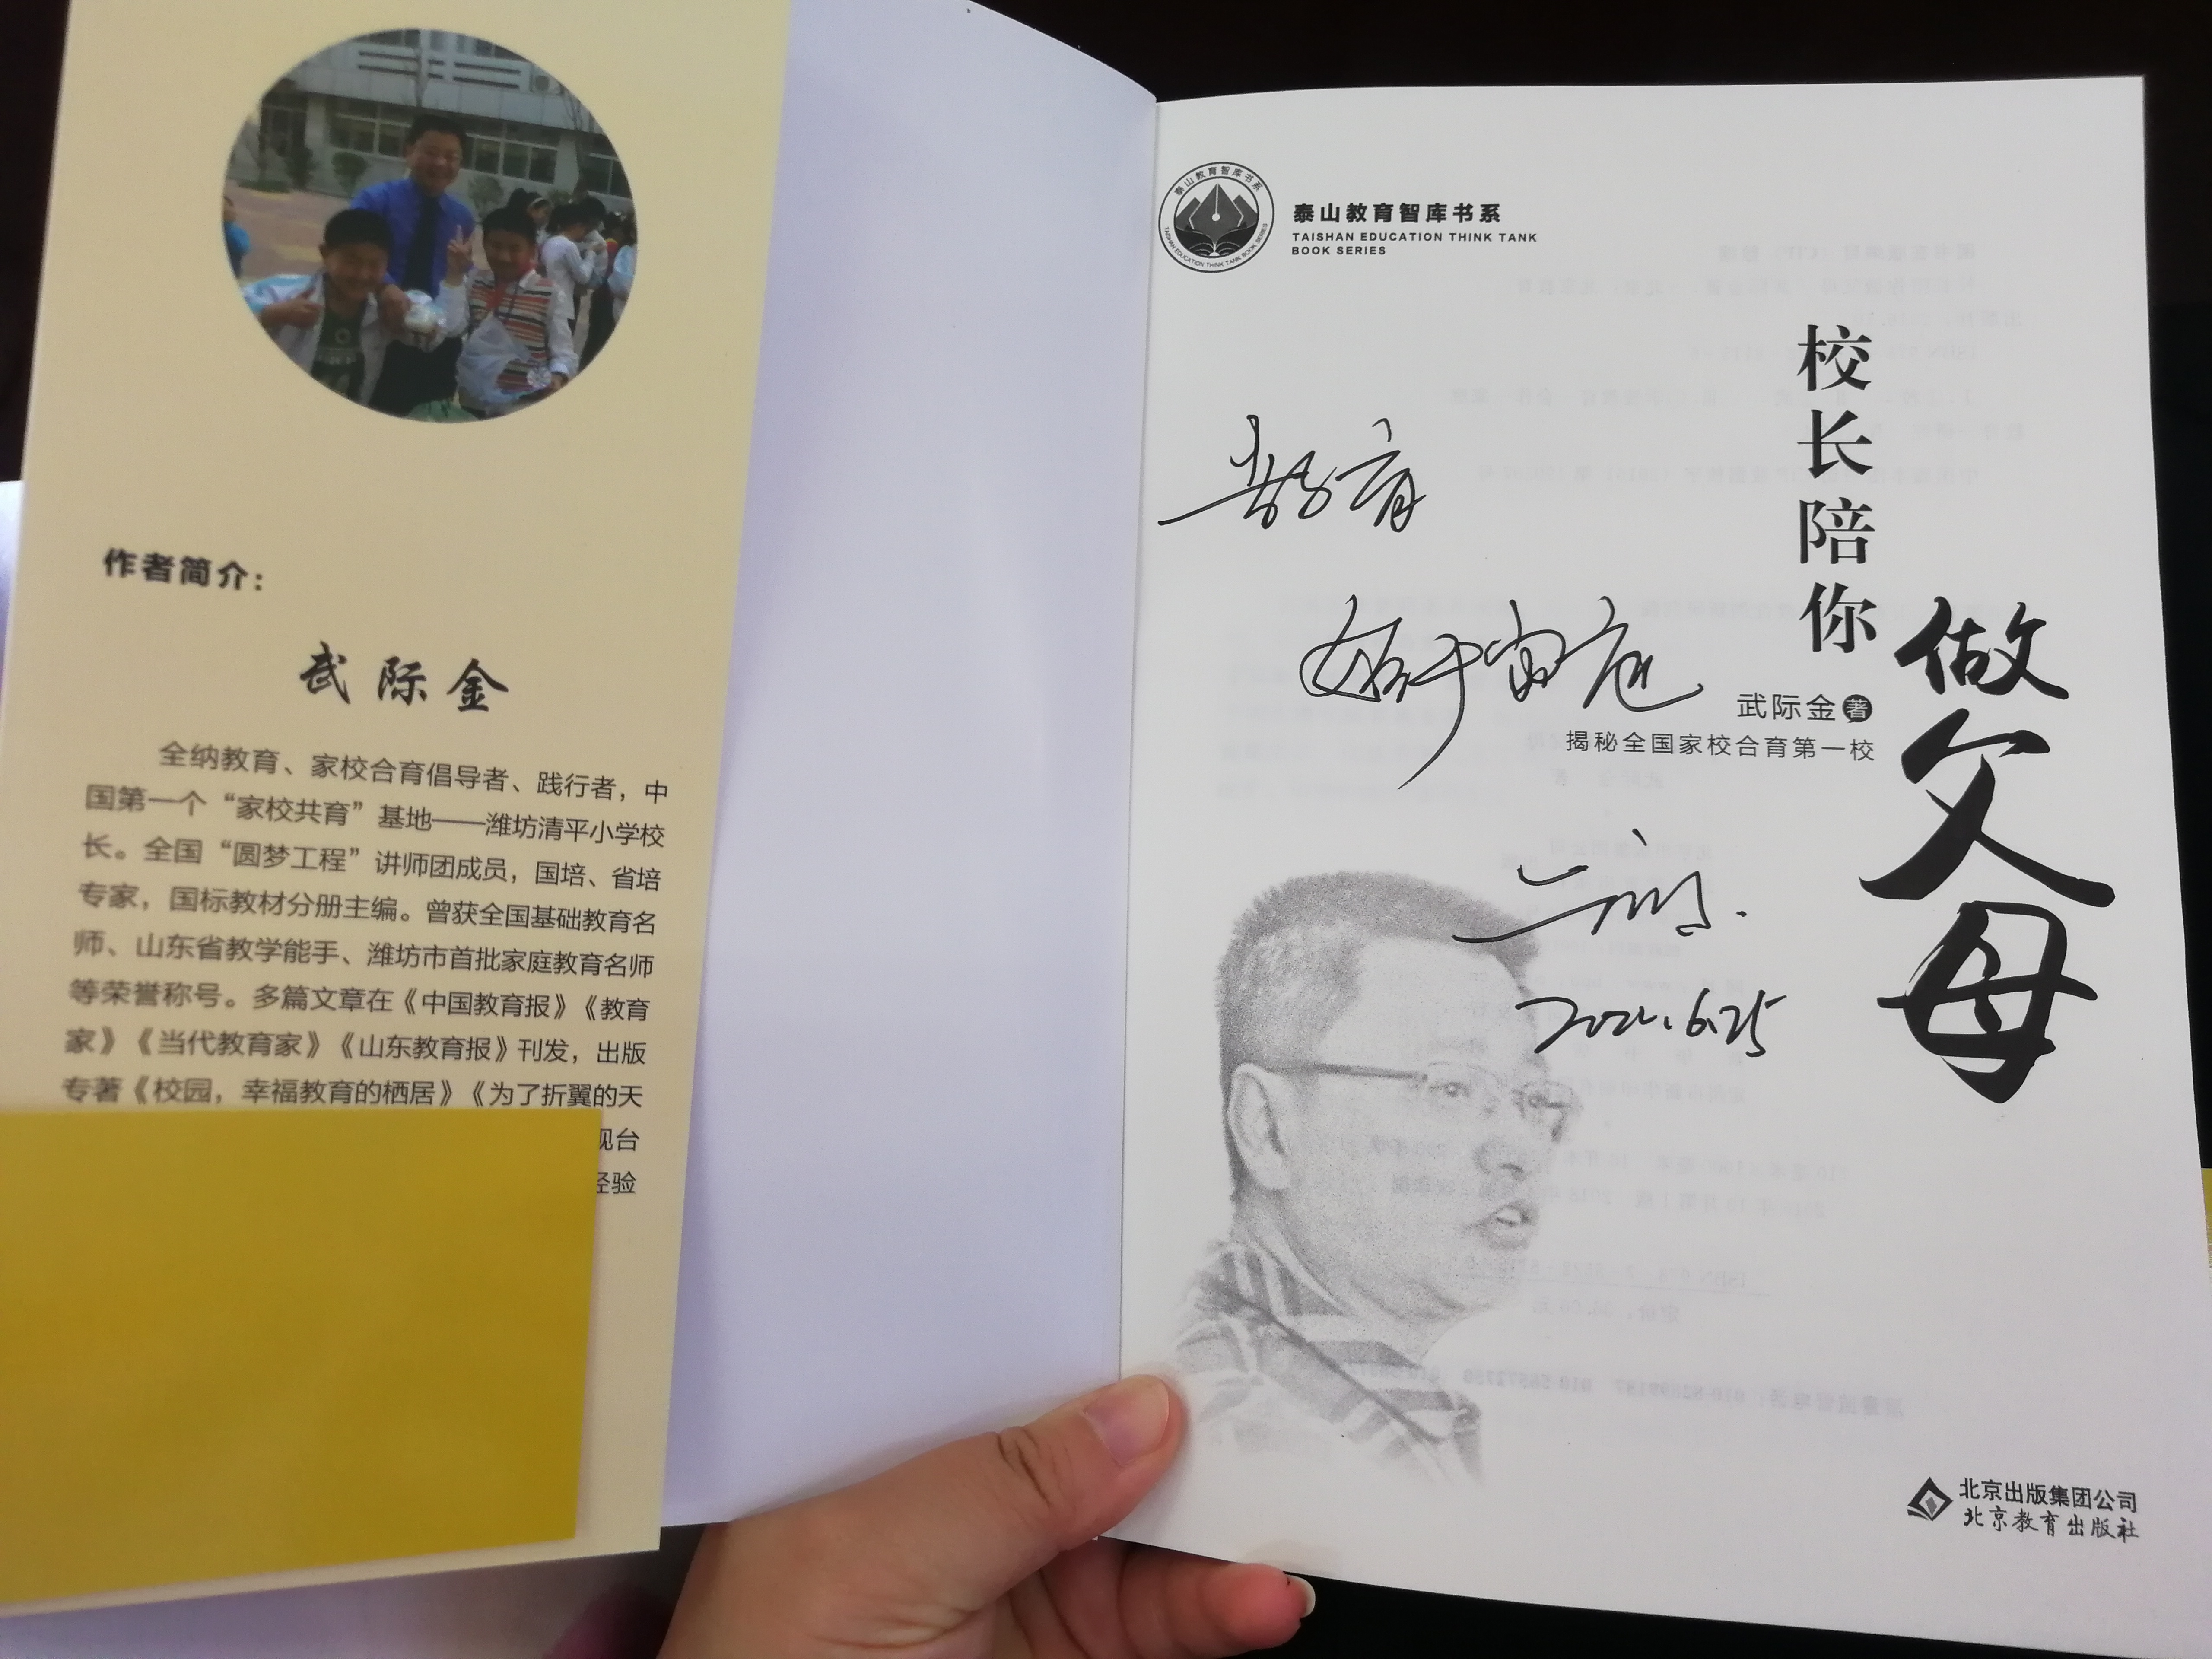 作者简介：
武际金
全纳教育、家校合育倡导者、践行者，中
国第一个“家校共育”基地——潍坊清平小学校
长。全国“圆梦工程”讲师团成员，国培、省培
专家，国标教材分册主编。曾获全国基础教育名
师、山东省教学能手、潍坊市首批家庭教育名师
等荣誉称号。多篇文章在《中国教育报》《教育
家》《当代教育家》《山东教育报》刊发，出版
专著《校园，幸福教育的栖居》《为了折翼的天
视台
经验
泰山教育智库书系
TAISHAN EDUCATION THINK TANK BOOK SERIES
泰山教育智库书系
TAISHAN EDUCATION THINK TANK
BOOK SERIES
校长陪你
做父母
武际金 著
揭秘全国家校合育第一校
教育
始于家庭
2021.6.25
北京出版集团公司
北京教育出版社